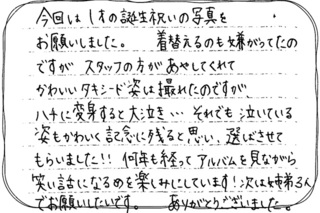 今回は1才の誕生祝いの写真を
お願いしました。 着替えるのも嫌がってたの
ですが スタッフの方があやしてくれて
かわいいタキシード姿は撮れたのですが
ハチに変身すると大泣き… それでも泣いている
姿もかわいく記念に残ると思い、選ばさせて
もらいました!! 何年も経ってアルバムを見ながら
笑い話になるのを楽しみにしています!次は姉弟3人
でお願いしたいです。 ありがとうございました。